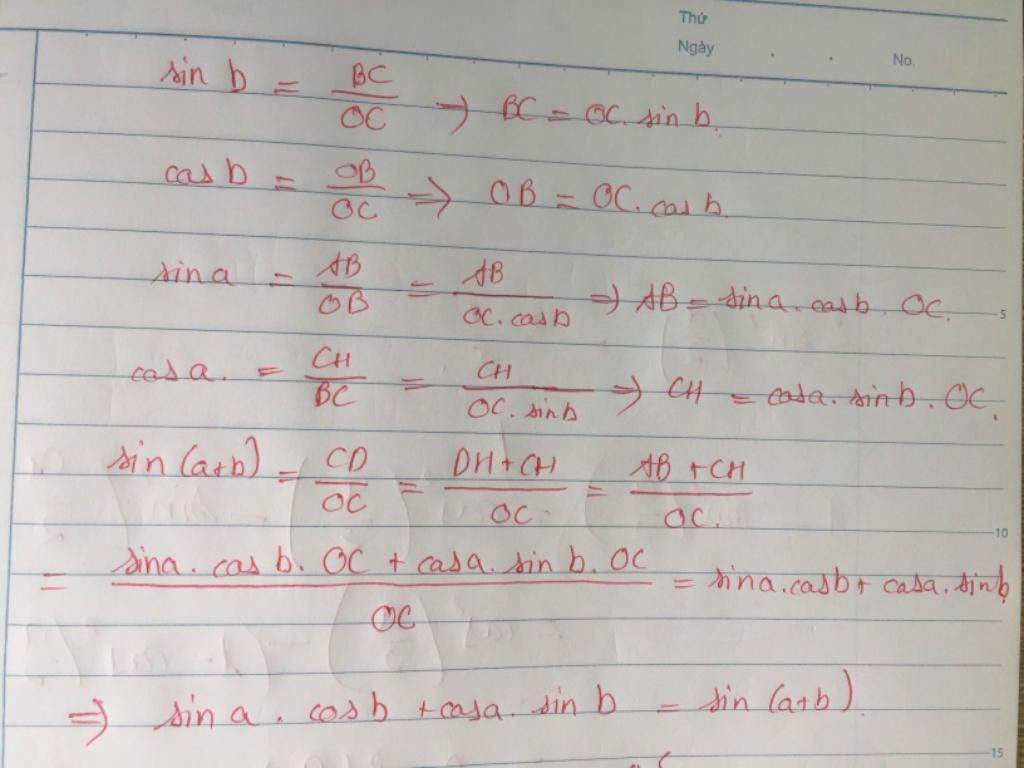 Thứ
Ngày . . No.
sin b = BC/OC → BC = OC. sin b.
cos b = OB/OC ⇒ OB = OC. cos b.
sin a = AB/OB = AB/OC. cos b ⇒ AB = sin a. cos b. OC.
cos a. = CH/BC = CH/OC. sin b ⇒ CH = cos a. sin b. OC.
5
sin (a+b) = CD/OC = DH + CH/OC. = AB + CH/OC.
10
= sin a. cos b. OC + cos a. sin b. OC/OC = sin a. cos b + cos a. sin b.
⇒ sin a. cos b + cos a. sin b = sin (a+b).
15